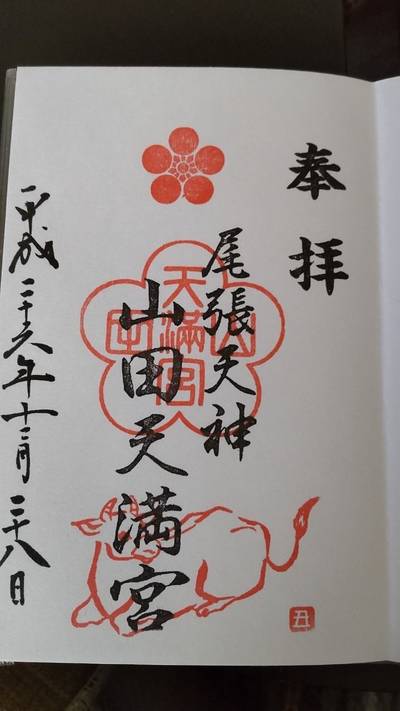 奉拝
尾張天神
山田天満宮
平成二十六年十二月二十八日
山田天満宮
丑